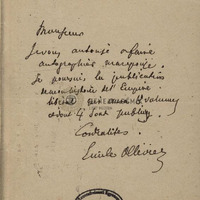 Monsieur
Je vous autorise à faire
autographier ma réponse.
Je poursuis la publication
de mon histoire de l'Empire
libéral 
dont 4 sont publiés
Cordialités.
Emile Ollivier